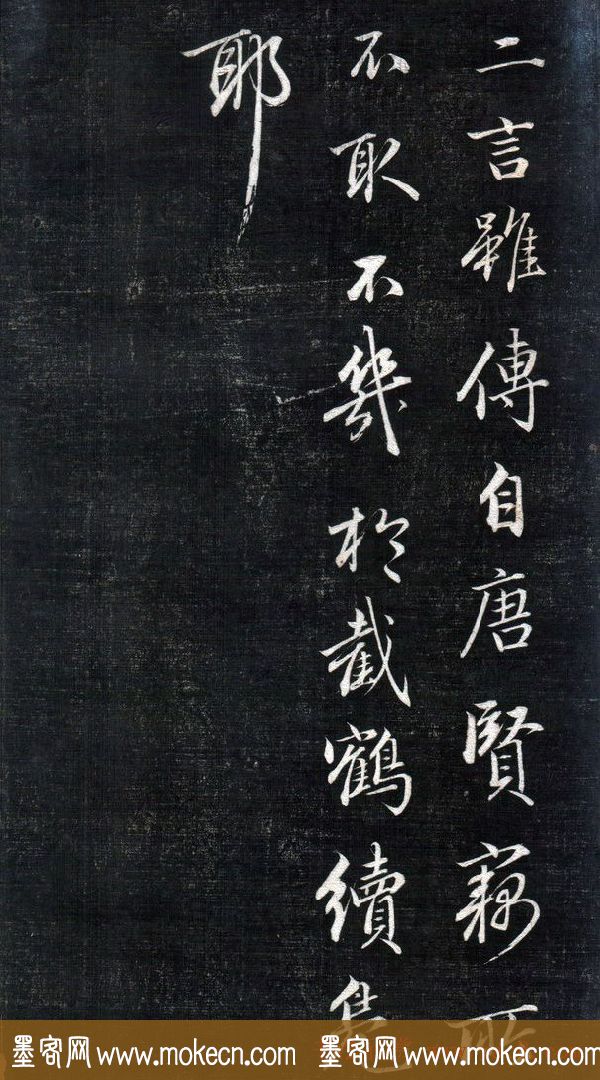 二言雖傳自唐賢竊
不取不幾於截鶴續
耶
墨客网 www.mokecn.com 墨客网 www.mokecn.com